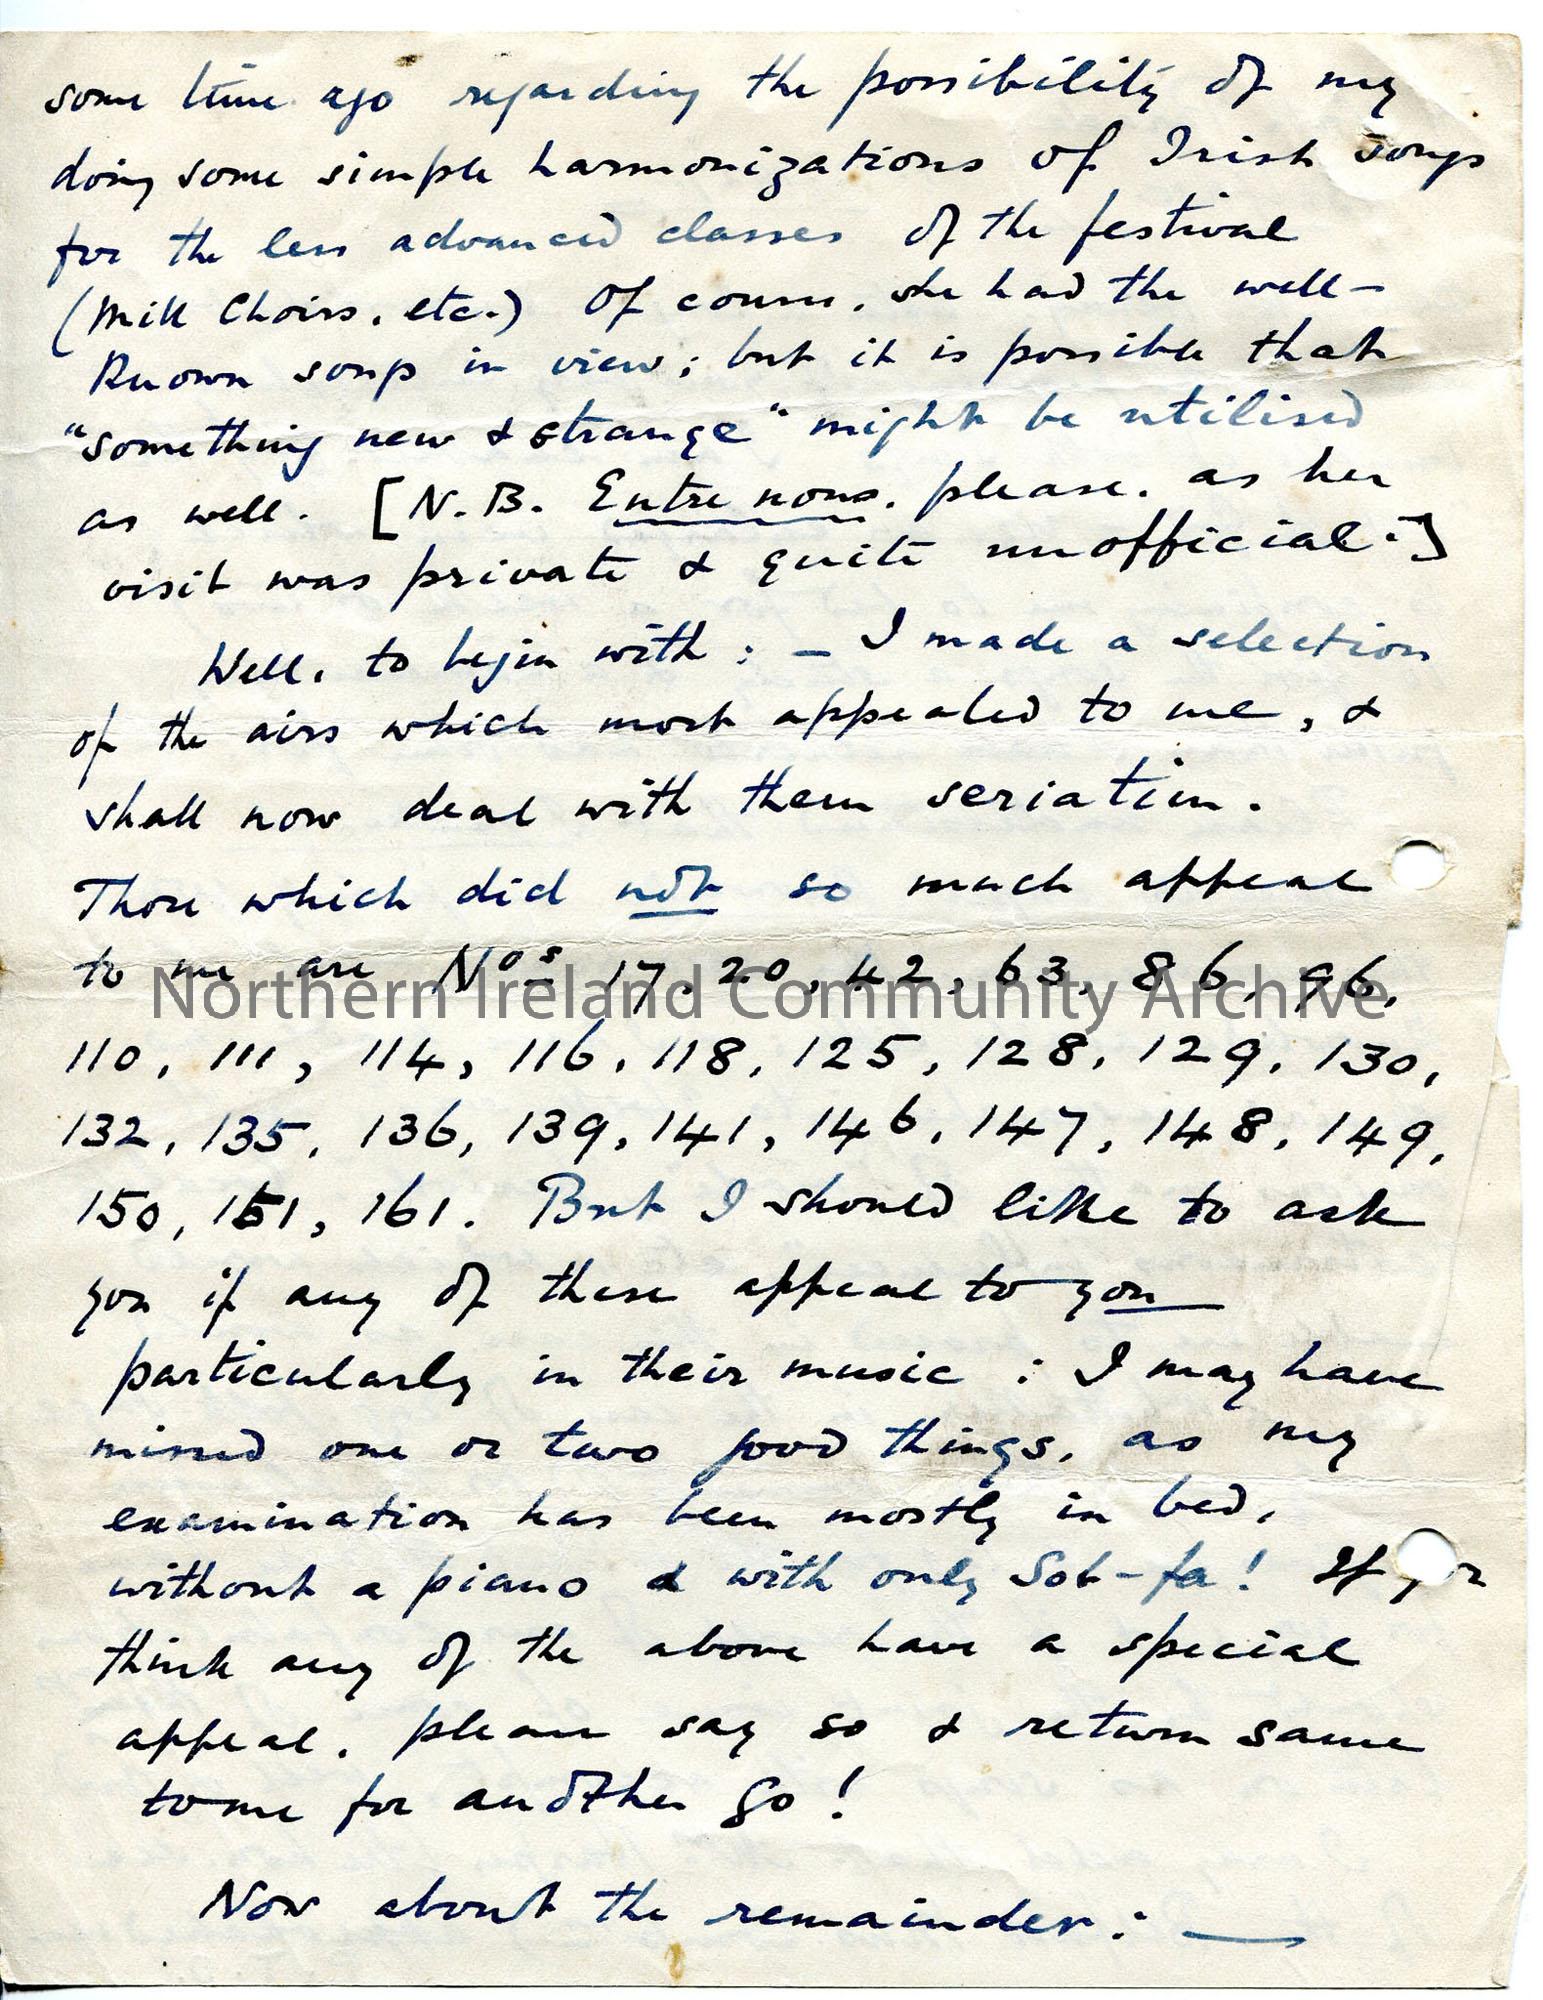 some time ago regarding the possibility of my
doing some simple harmonizations of Irish songs
for the less advanced classes of the festival
(Mill Choirs, etc.) Of course, she had the well-
known songs in view; but it is possible that
"something new & strange" might be utilised
as well. [N.B. Entre nous, please, as her
visit was private & quite unofficial.]
Well, to begin with: — I made a selection
of the airs which most appealed to me, &
shall now deal with them seriatim.
Those which did not so much appeal
to me are Nos 17, 20, 42, 63, 86, 96,
Northern Ireland Community Archive
110, 111, 114, 116, 118, 125, 128, 129, 130,
132, 135, 136, 139, 141, 146, 147, 148, 149,
150, 151, 161. But I should like to ask
you if any of these appeal to you
particularly in their music: I may have
missed one or two good things, as my
examination has been mostly in bed,
without a piano & with only Sol-fa! If
think any of the above have a special
appeal, please say so & return same
to me for another go!
Now about the remainder: —